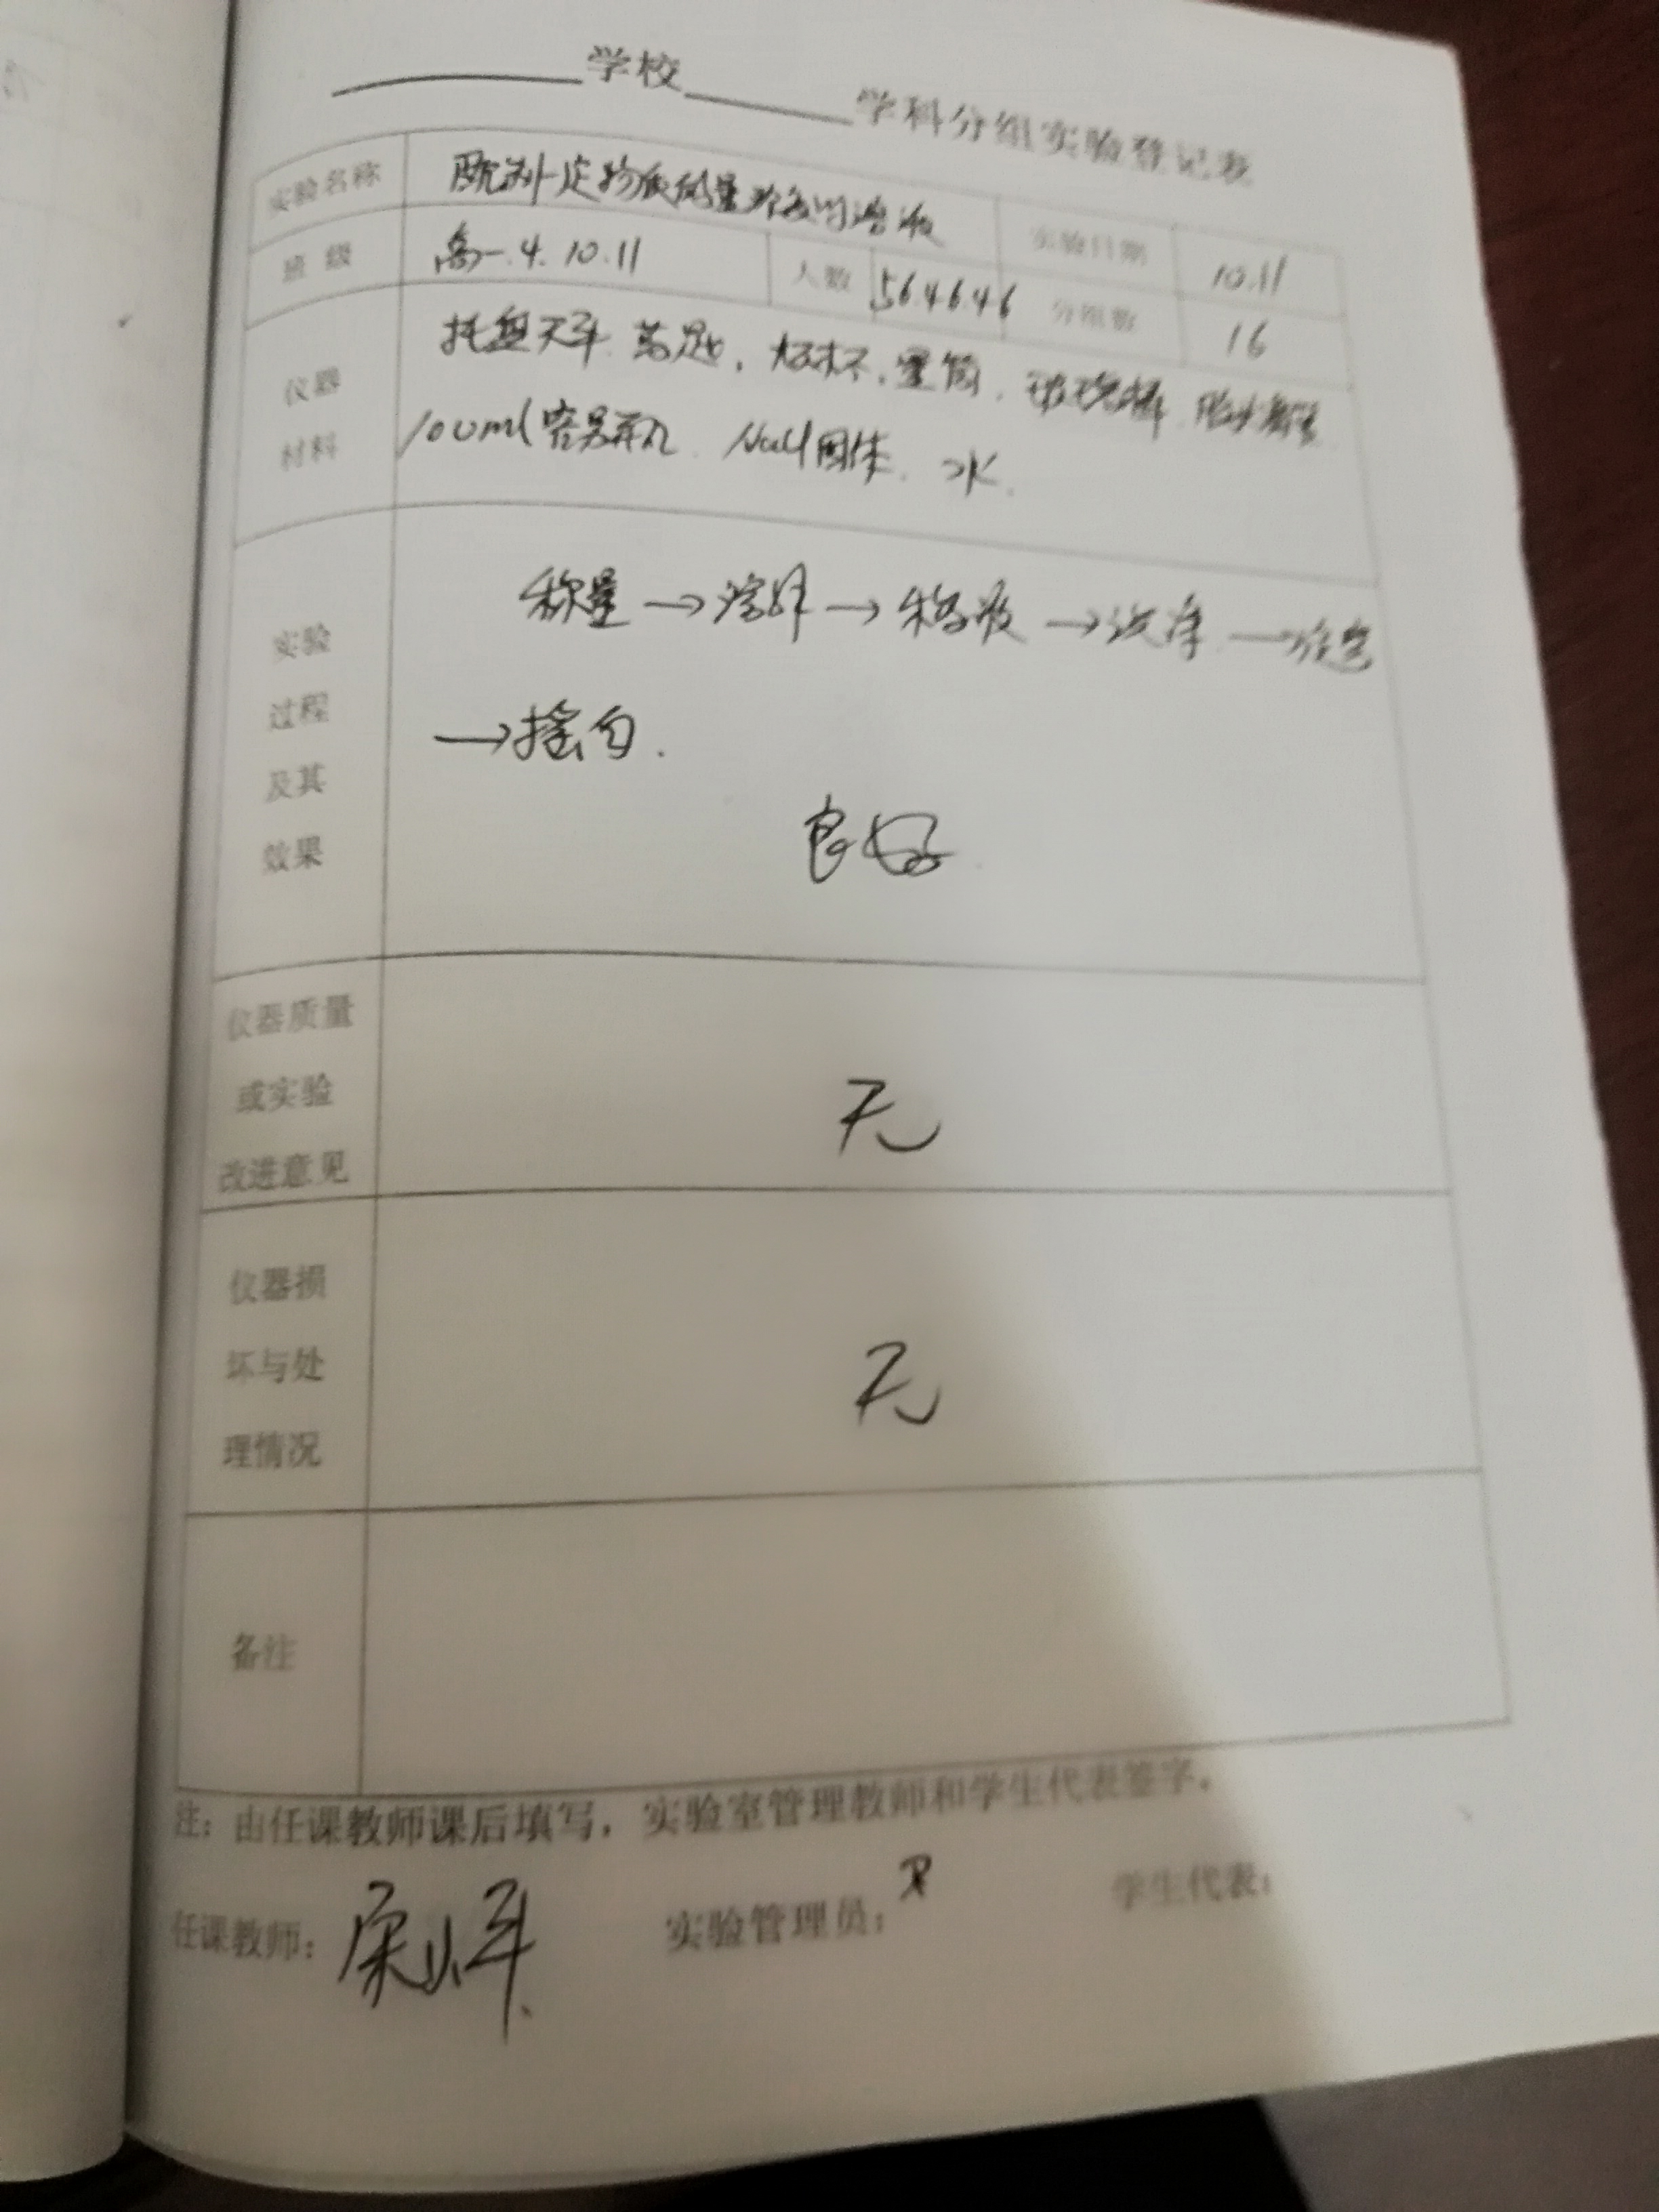 学校 学科分组实验登记表
实验名称 配制一定物质的量浓度的溶液 实验日期 10.11
班级 高一.4.10.11 人数 56.46.46 分组数 16
仪器材料 托盘天平 药匙，烧杯，量筒，玻璃棒，胶头滴管
100ml容量瓶．NaCl固体．水．
实验过程及其效果 称量→溶解→移液→洗涤→定容
→摇匀．
良好
仪器质量或实验改进意见 无
仪器损坏与处理情况 无
备注
注：由任课教师课后填写，实验室管理教师和学生代表签字。
任课教师： 实验管理员： 学生代表：